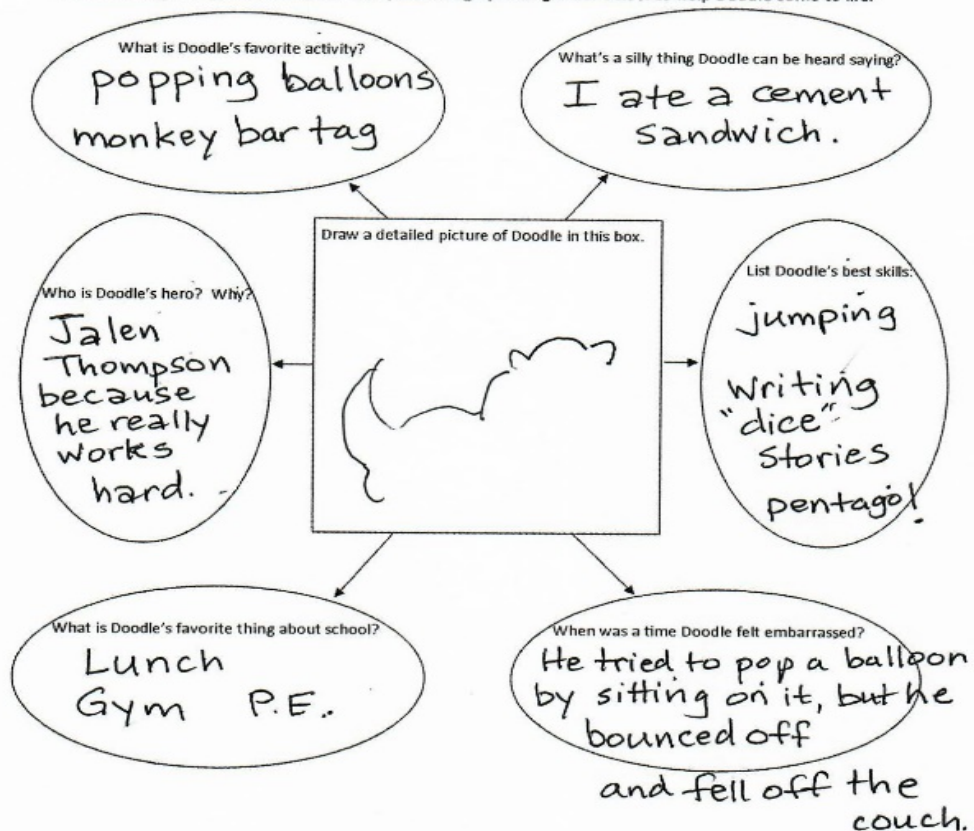 What is Doodle's favorite activity?
popping balloons
monkey bar tag
What's a silly thing Doodle can be heard saying?
I ate a cement
sandwich.
Draw a detailed picture of Doodle in this box.
Who is Doodle's hero? Why?
Jalen
Thompson
because
he really
works
hard.
List Doodle's best skills:
jumping
Writing
"dice"
Stories
pentago!
What is Doodle's favorite thing about school?
Lunch
Gym P.E.
When was a time Doodle felt embarrassed?
He tried to pop a balloon
by sitting on it, but he
bounced off
and fell off the
couch.